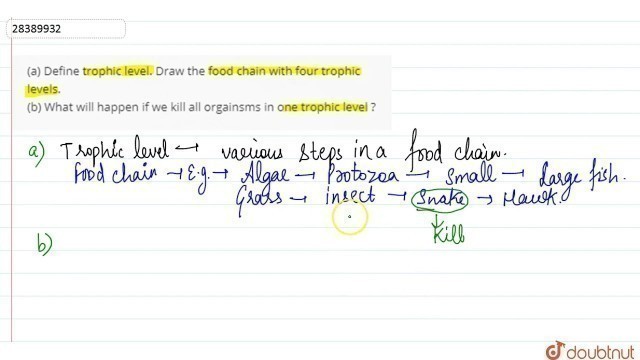 28389932
(a) Define trophic level. Draw the food chain with four trophic
levels.
(b) What will happen if we kill all orgainsms in one trophic level ?
a) Trophic level → various steps in a food chain.
Food chain → E.g. → Algae → Protozoa → Small → Large fish.
Grass → insect → Snake → Hawk.
Kill
b)
doubtnut